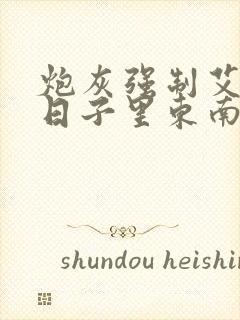 炮灰强制艾
日子里东南
shundou heishin